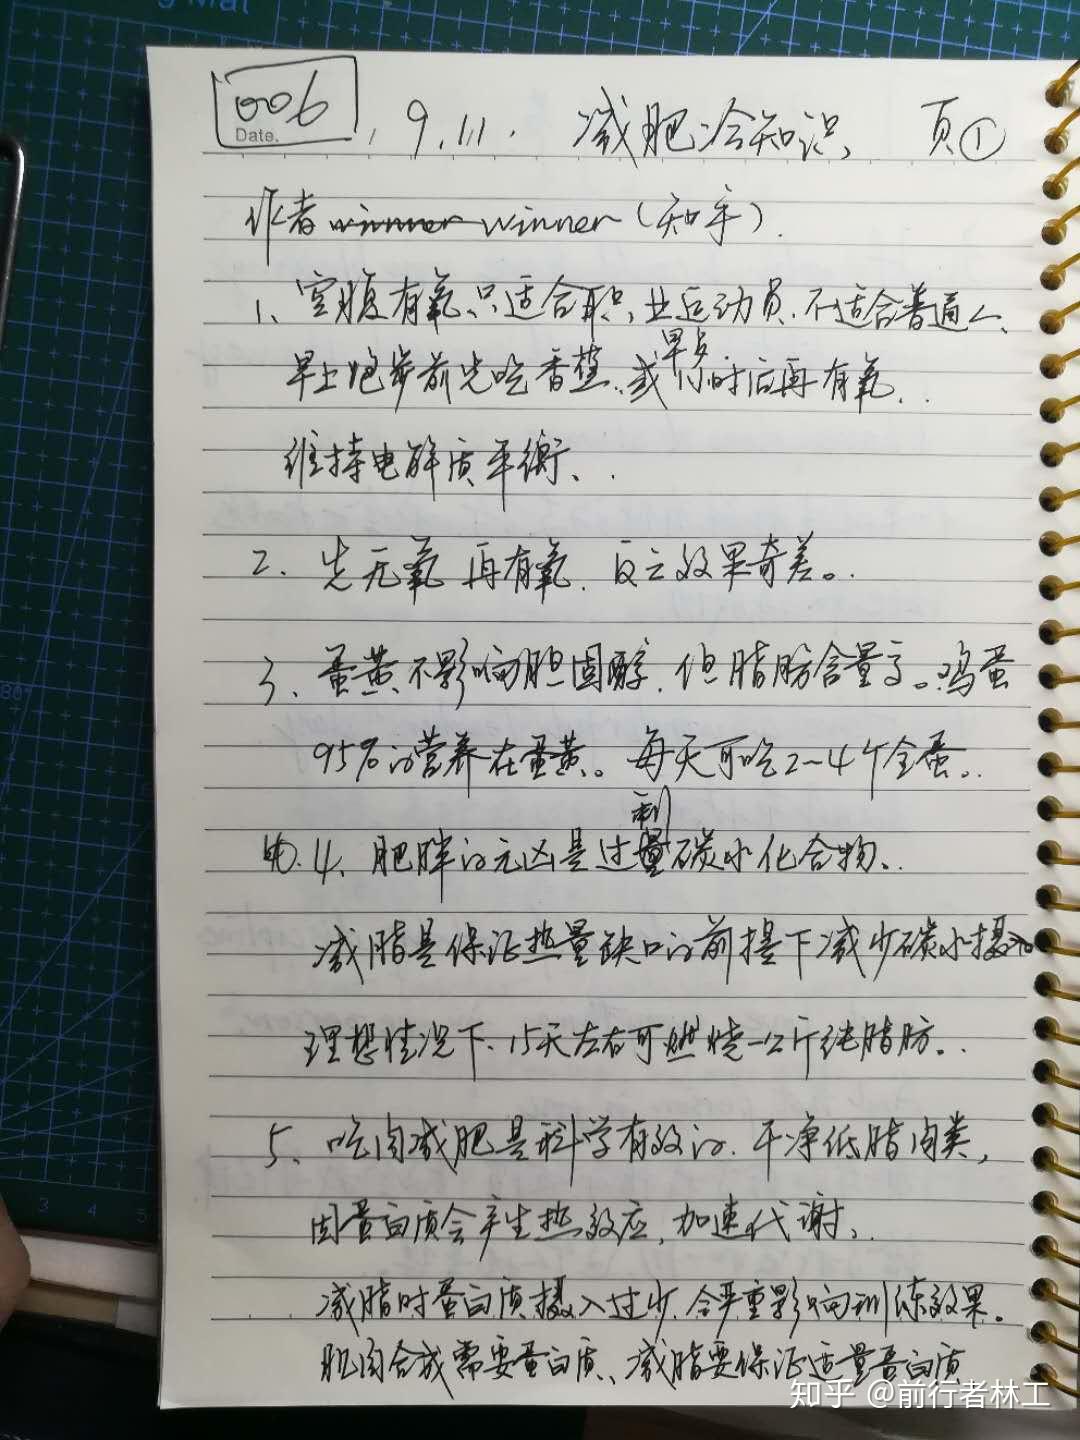 006
Date.
9.11. 减肥冷知识 页①
作者 winner winner(知乎).
1、空腹有氧、只适合职业运动员.不适合普通人、
早点.
早上跑步前先吃香蕉、或1小时后再有氧..
维持电解质平衡、.
2. 先无氧 再有氧. 反之效果奇差。.
3、蛋黄不影响胆固醇.但脂肪含量高。鸡蛋
95%的营养在蛋黄。每天可吃2~4个全蛋..
剩
4、肥胖的元凶是过量碳水化合物、.
减脂是保证热量缺口的前提下减少碳水摄入
理想情况下、15天左右可燃烧一公斤纯脂肪。.
5、吃肉减肥是科学有效的.干净低脂肉类,
因蛋白质会产生热效应,加速代谢、.
减脂时蛋白质摄入过少.会严重影响训练效果。
肌肉合成需要蛋白质、减脂要保证适量蛋白质
知乎 @前行者林工
3 4 5